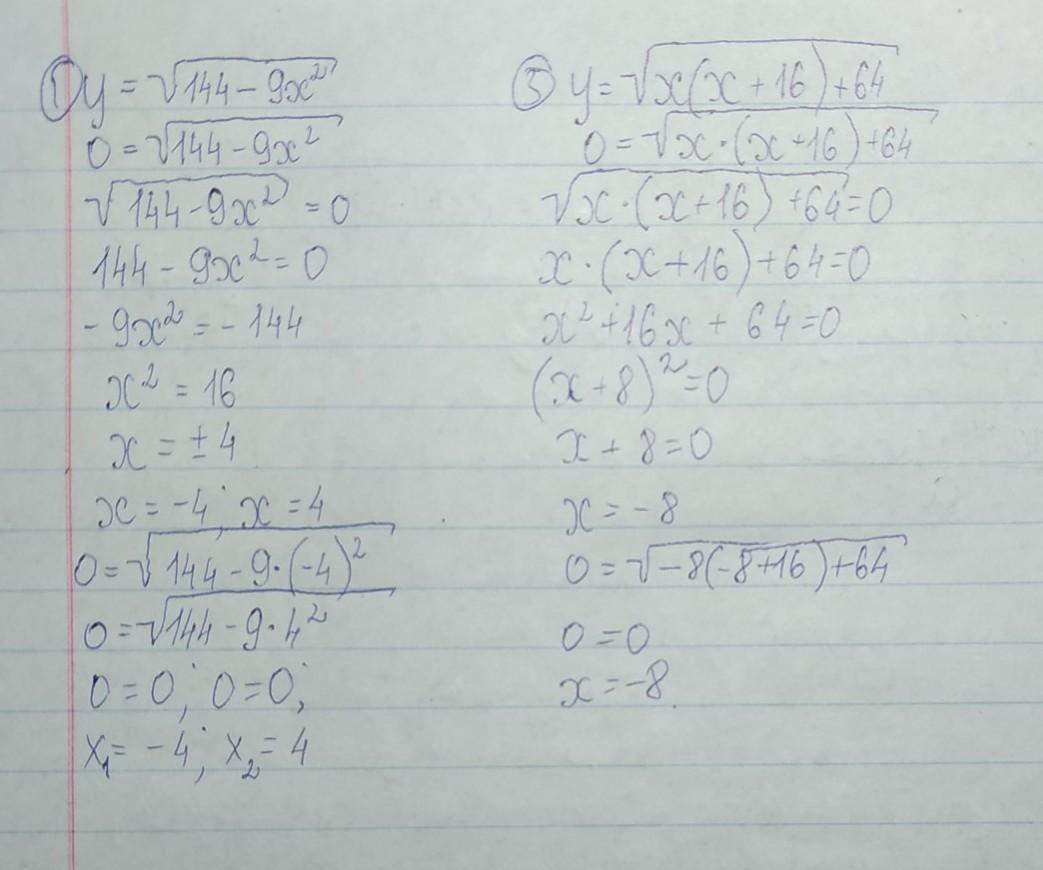 ① y = √144 - 9x²
0 = √144 - 9x²
√144 - 9x² = 0
144 - 9x² = 0
- 9x² = - 144
x² = 16
x = ± 4
x = -4; x = 4
0 = √144 - 9·(-4)²
0 = √144 - 9·4²
0 = 0; 0 = 0;
x₁ = -4; x₂ = 4
③ y = √x(x + 16) + 64
0 = √x·(x + 16) + 64
√x·(x + 16) + 64 = 0
x·(x + 16) + 64 = 0
x² + 16x + 64 = 0
(x + 8)² = 0
x + 8 = 0
x = -8
0 = √-8(-8+16) + 64
0 = 0
x = -8.